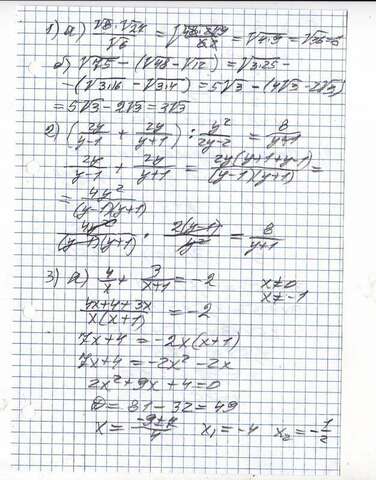 1) а) √8 · √27 / √6 = √ = √4·9 = √36 = 6
б) √75 - (√48 - √12) = √3·25 -
- (√3·16 - √3·4) = 5√3 - (4√3 - 2√3)
= 5√3 - 2√3 = 3√3
2) (2y/(y-1) + 2y/(y+1)) : y²/(2y-2) = 8/(y+1)
2y/(y-1) + 2y/(y+1) = 2y(y+1+y-1)/((y-1)(y+1)) =
= 4y²/((y-1)(y+1))
4y²/((y-1)(y+1)) · 2(y-1)/y² = 8/(y+1)
3) а) 4/x + 3/(x+1) = -2 x≠0
x≠-1
(4x+4+3x)/(x(x+1)) = -2
7x+4 = -2x(x+1)
7x+4 = -2x² - 2x
2x²+9x+4=0
D = 81-32 = 49
x = (-9±7)/4 x₁ = -4 x₂ = -1/2